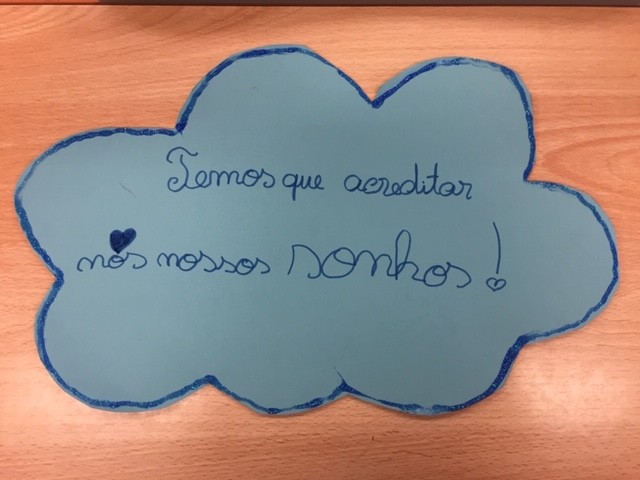 Temos que acreditar
nos nossos sonhos!